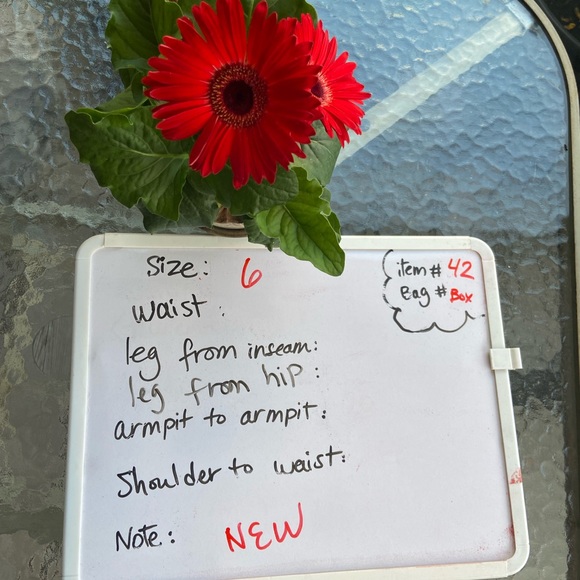 Size: 6
item # 42
Bag # Box
waist :
leg from inseam:
leg from hip :
armpit to armpit:
Shoulder to waist:
Note: NEW